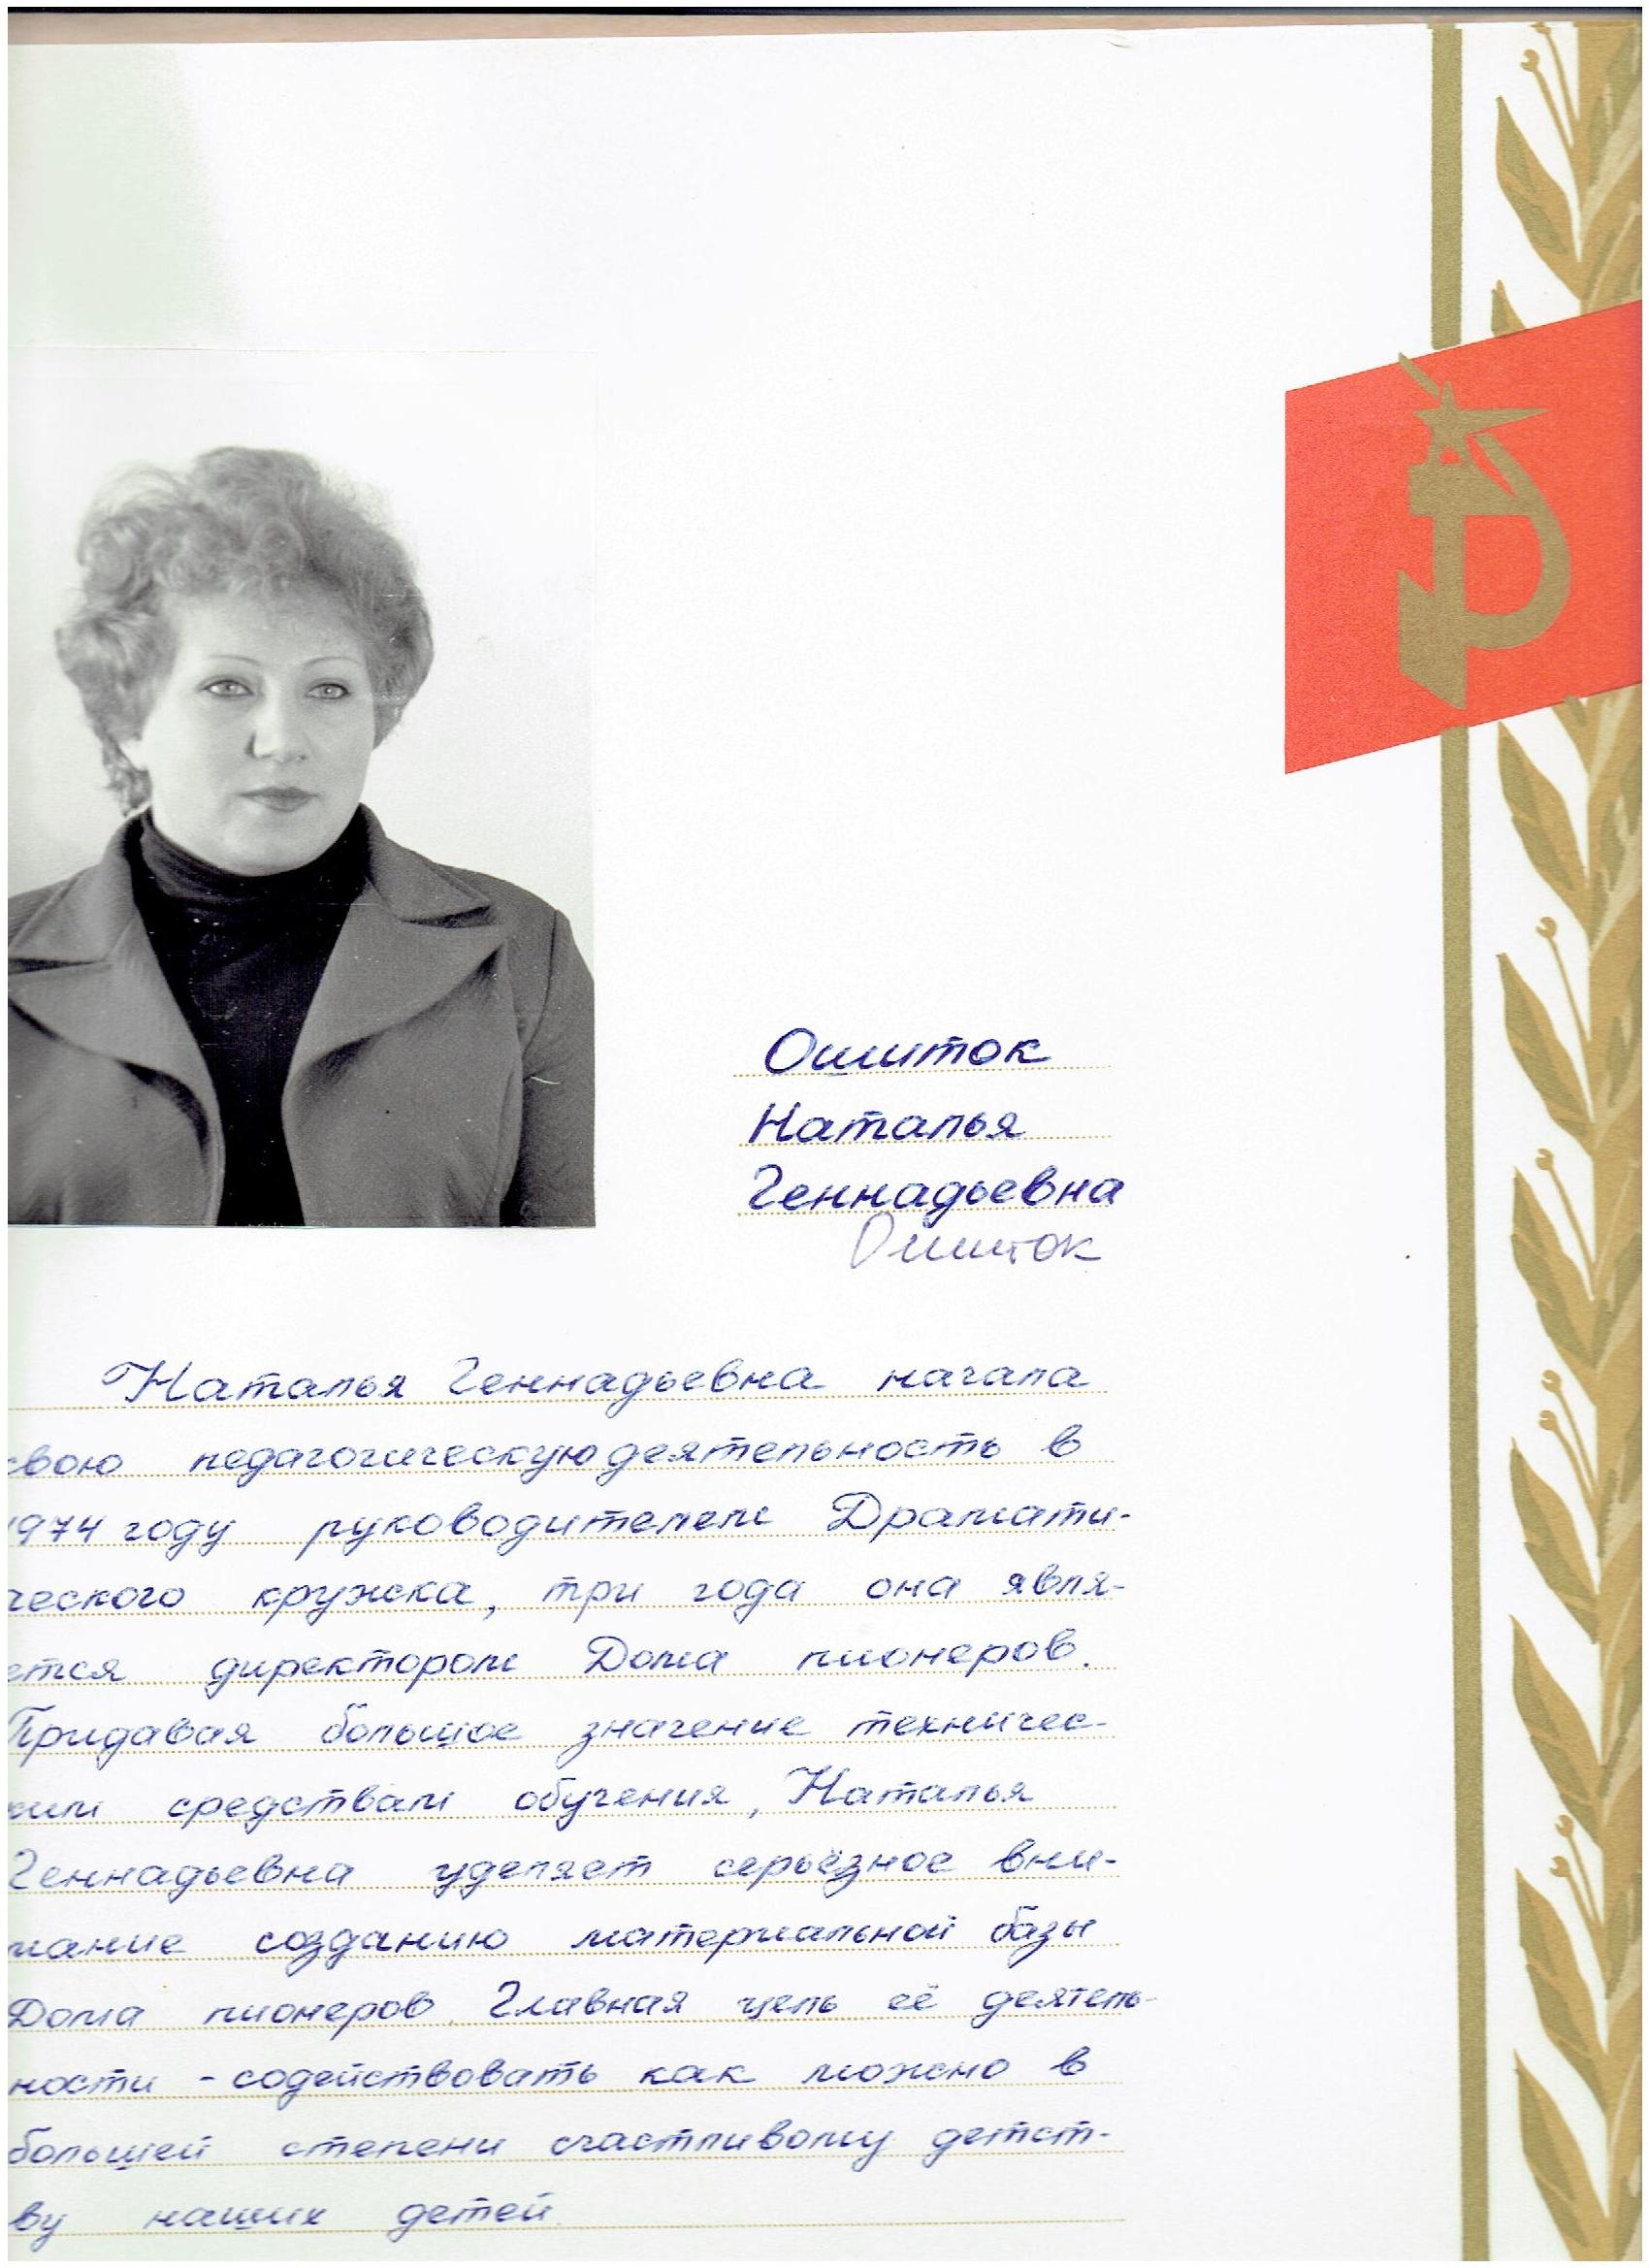 Ошиток
Наталья
Геннадьевна
Ошиток
Наталья Геннадьевна начала
свою педагогическую деятельность в
1974 году руководителем Драмати-
ческого кружка, три года она явля-
ется директором Дома пионеров.
Придавая большое значение техничес-
ким средствам обучения, Наталья
Геннадьевна уделяет серьёзное вни-
мание созданию материальной базы
Дома пионеров. Главная цель её деятель-
ности - содействовать как можно в
большей степени счастливому детст-
ву наших детей.